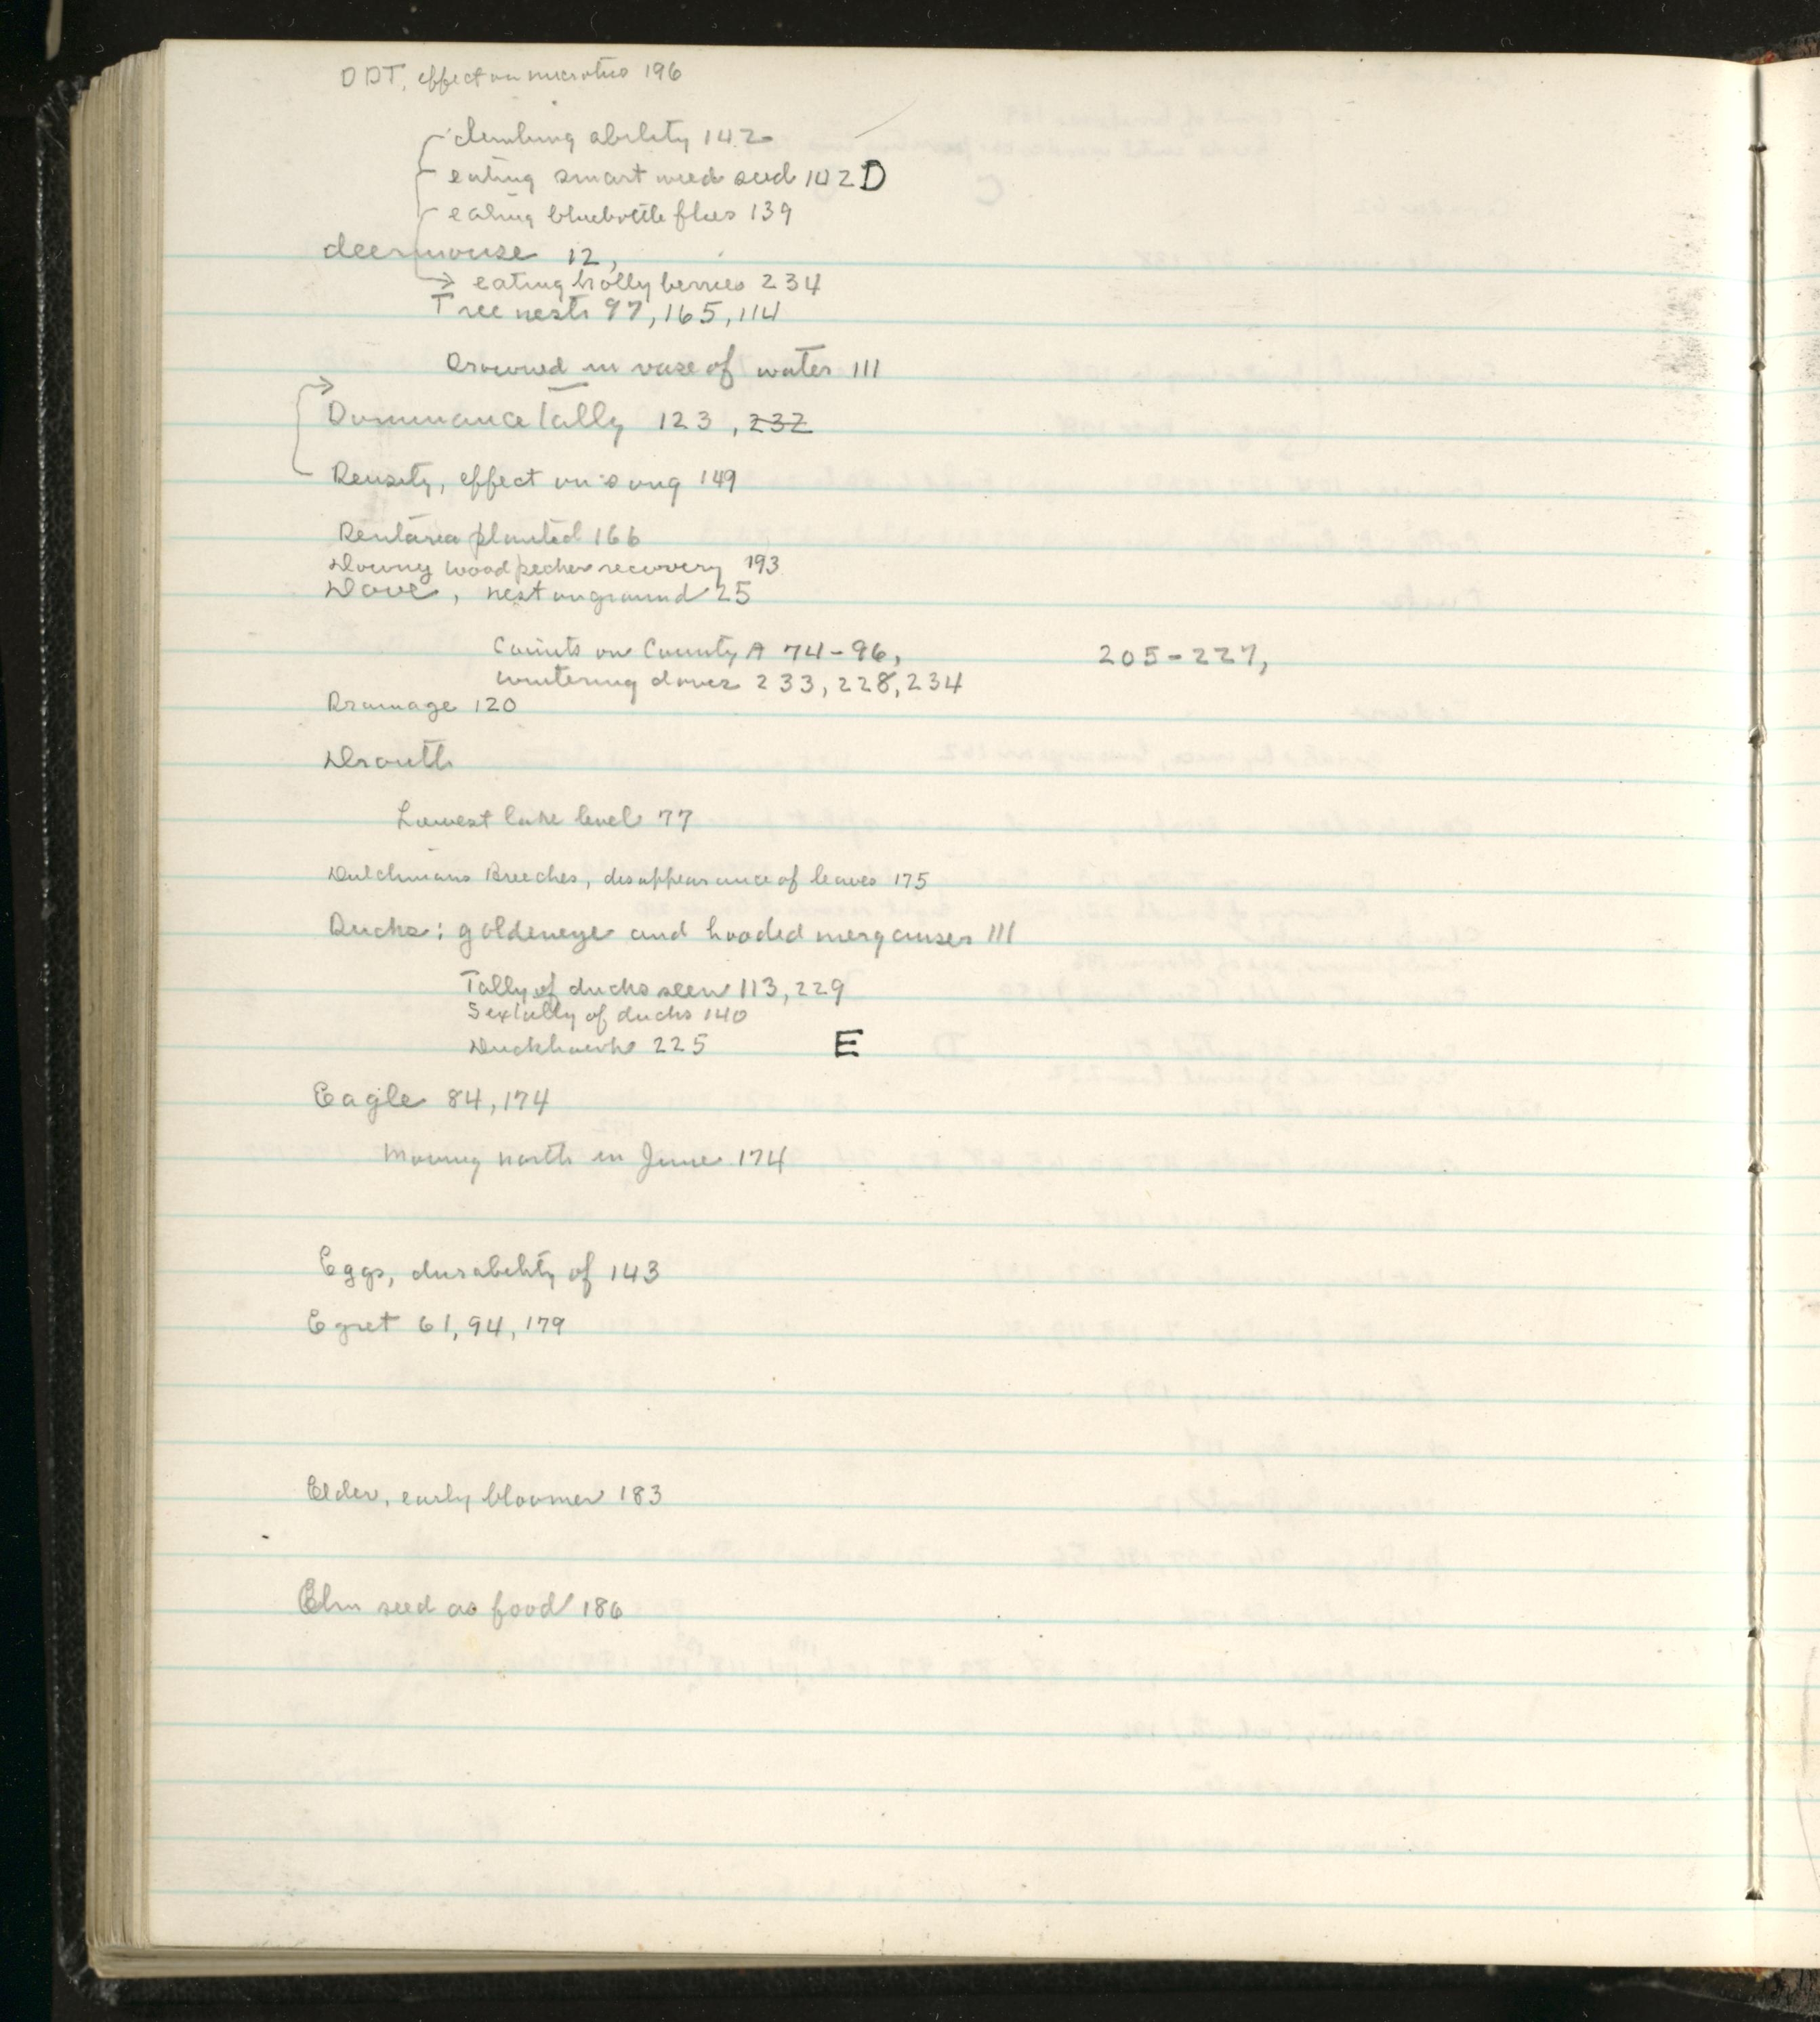 DDT, effect on microtus 196
climbing ability 142
eating smart weed seed 142 D
eating bluebottle flies 139
deermouse 12,
eating holly berries 234
Tree nests 97, 165, 114
Drowned in vase of water 111
Dominance Tally 123, 232
Density, effect on song 149
Dentaria planted 166
Downy woodpecker recovery 193
Dove, nest on ground 25
Counts on County A 74-96, 205-227,
wintering doves 233, 228, 234
Drainage 120
Drouth
Lowest lake level 77
Dutchmans Breeches, disappearance of leaves 175
Ducks: goldeneye and hooded merganser 111
Tally of ducks seen 113, 229
Sex tally of ducks 140
Duckhawk 225 E
Eagle 84, 174
Moving north in June 174
Eggs, durability of 143
Egret 61, 94, 179
Elder, early bloomer 183
Elm seed as food 186